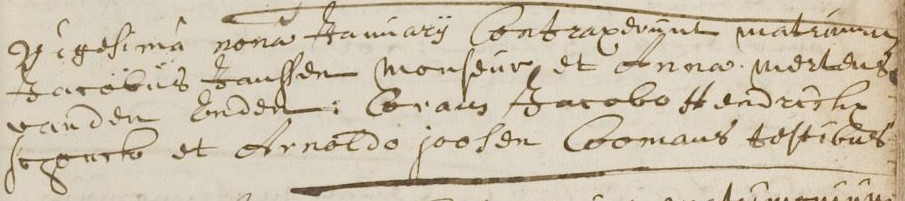 Vigesima nona Januarij Contraxerunt matrimon
Jacobus Janssen monseur et Anna mertens
vanden Enden: Coram Jacobo Hendrickx
et Arnoldo joosen Coomans testibus